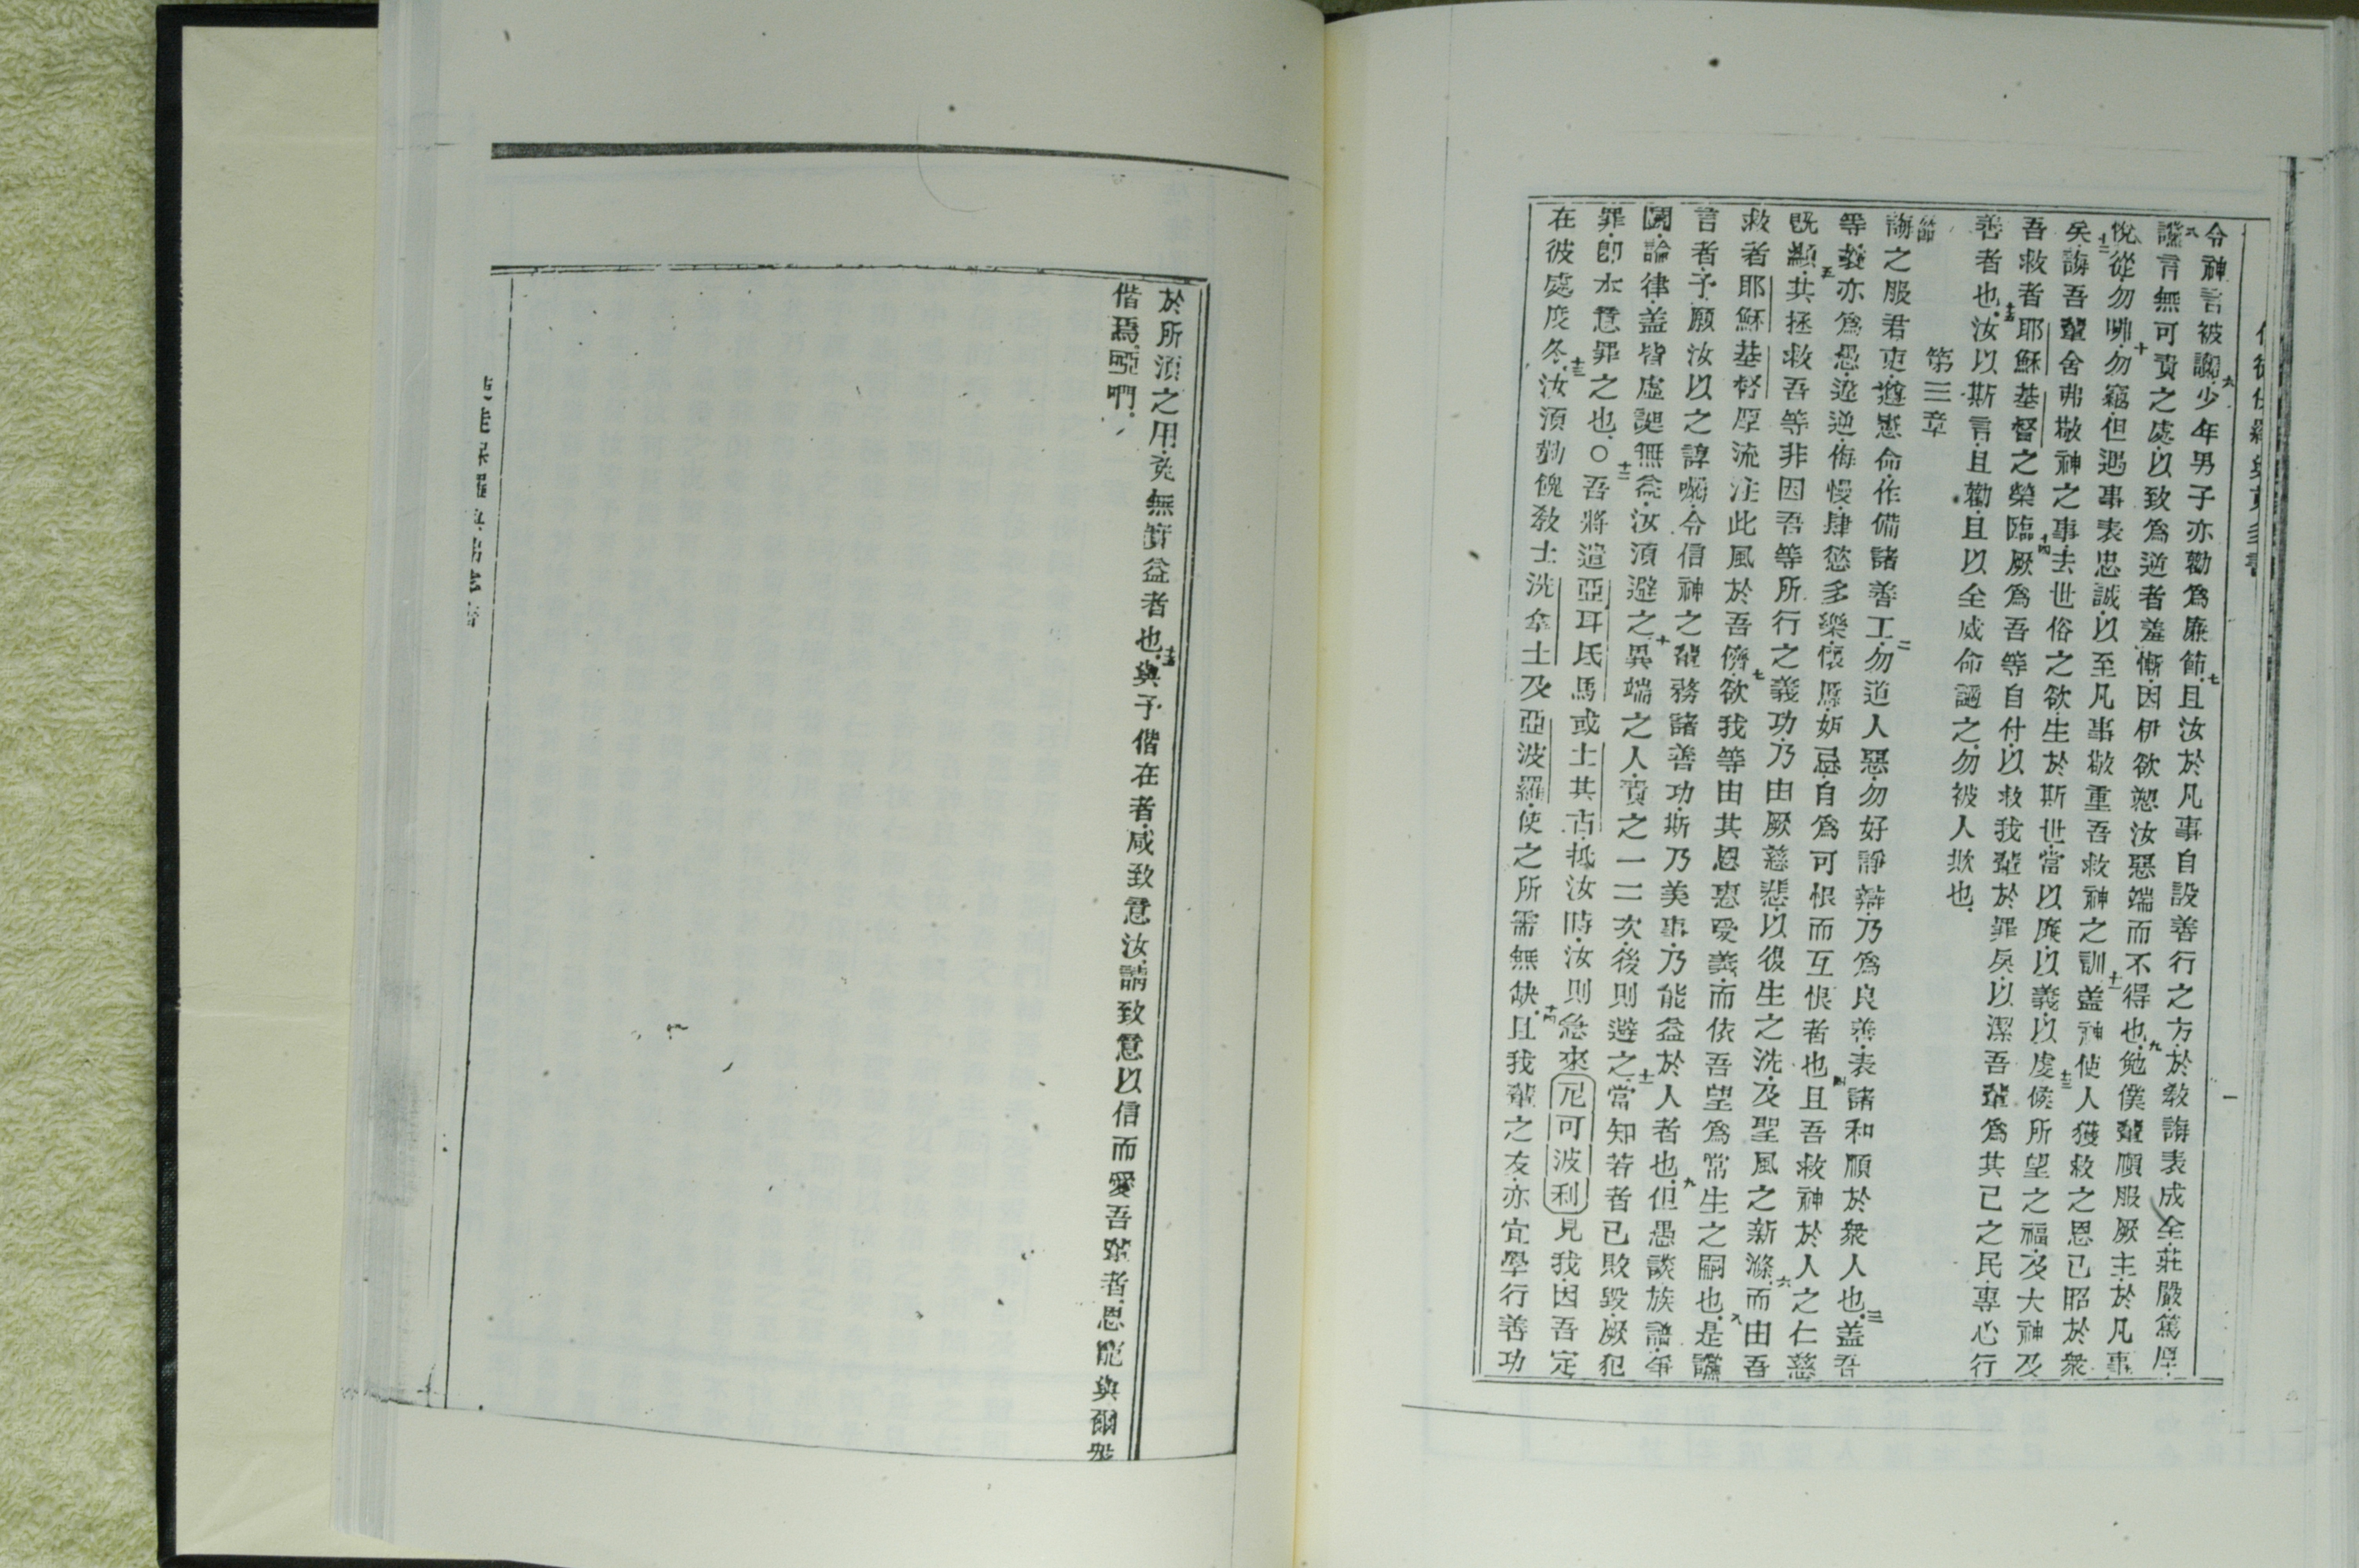 令神言被謭少年男子亦勸爲廉節且汝於凡事自設善行之方於敎誨表成全莊嚴篤厚
讜言無可責之處以致爲逆者羞慚因伊欲愬汝惡端而不得也勉僕輩順服厥主於凡事
悅從勿咈勿竊但遇事表忠誠以至凡事敬重吾救神之訓蓋神使人獲救之恩已昭於衆
矣誨吾輩舍弗敬神之事去世俗之欲生於斯世當以廉以義以虔候所望之福及大神及
吾救者耶穌基督之榮臨厥爲吾等自付以救我輩於罪戾以潔吾輩爲其己之民專心行
善者也汝以斯言且勸且以全威命謳之勿被人欺也
第三章
誨之服君吏遵憲命作備諸善工勿道人惡勿好諍辯乃爲良善表諸和順於衆人也蓋吾
等曩亦爲愚逆逆侮慢肆慾多樂懷慝妒忌自爲可恨而互恨者也且吾救神於人之仁慈
既顯其拯救吾等非因吾等所行之義功乃由厥慈悲以復生之洗及聖風之新滌而由吾
救者耶穌基督厚流注此風於吾儕欲我等由其恩惠愛義而依吾望爲常生之嗣也是讜
言者予願汝以之諄囑令信神之輩務諸善功斯乃美事乃能益於人者也但愚談族譜爭
鬬論律蓋皆虛誕無益汝須避之異端之人責之一二次後則避之當知若者已敗毀厥犯
罪卽本意罪之也○吾將遣亞耳氐馬或士其古抵汝時汝則急來尼可波利見我因吾定
在彼處度冬汝須勤餽敎士洗拿士及亞波羅使之所需無缺且我輩之友亦宜學行善功
於所須之用免無實益者也與予偕在者咸致意汝請致意以信而愛吾輩者恩寵與爾衆
偕焉啞吤